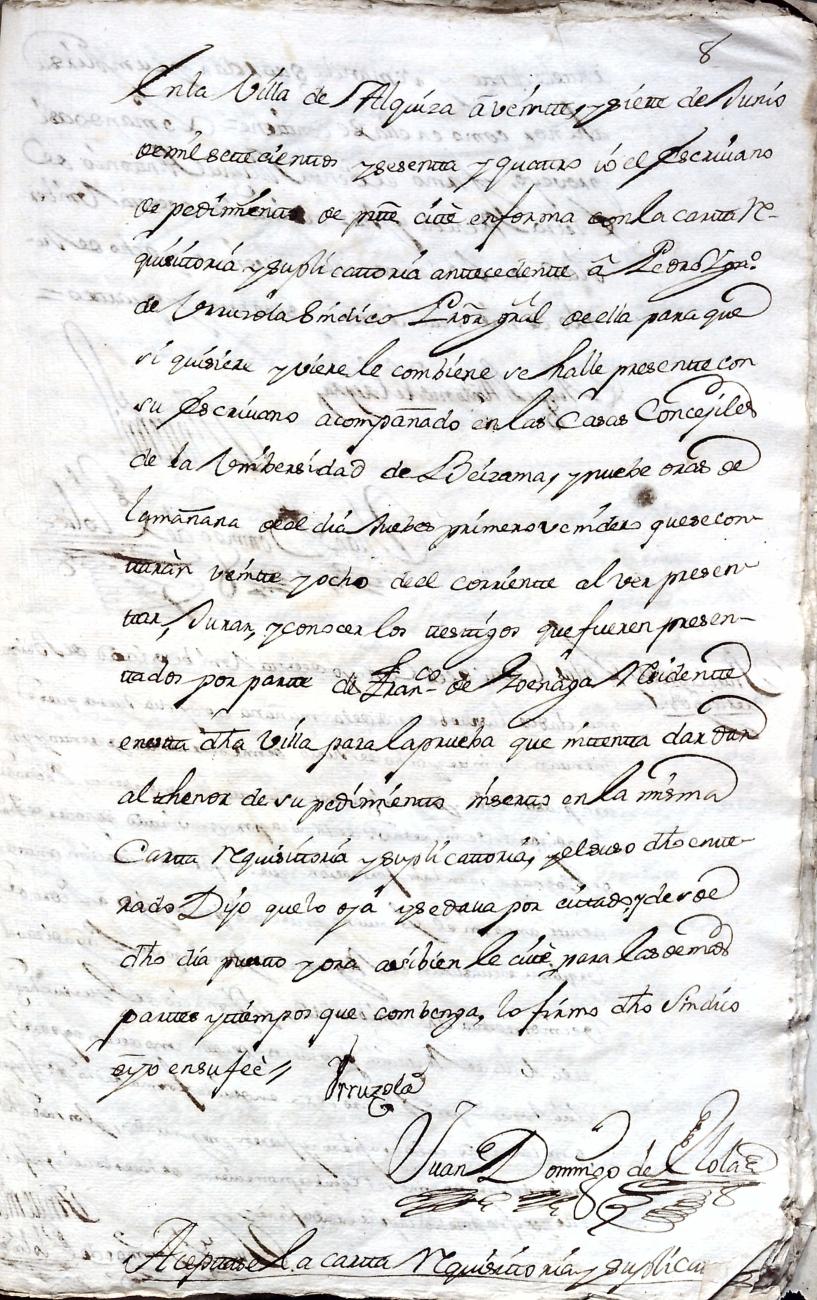 8
En la Villa de Alquiza a veintte, y siette de Junio
de mil settecientos y sesentta y quattro io el Escrivano
de pedimientto de pntte citè en forma con la cartta re-
quisittoria y suplicattoria antecedente à Pedro Ygn.º
de Urruzola Sindico Pror gral de ella para que
si quisiere y viere le combiene se halle presentte con
su Escrivano acompañado en las Casas Concejiles
de la Unibersidad de Beizama, y nuebe oras de
la mañana de el dia Juebes primero venidero que se con-
ttaràn veintte y ocho de el corrientte al ver presen-
ttar, Jurar, y conocer los ttesttigos que fueren presen-
ttados por partte de Fran.co de Zoenaga Residentte
en estta dha Villa para la prueba que inttentta dar
al thenor de su pedimientto insertto en la misma
Cartta requisittoria y suplicattoria, y el suso dho entte-
rado Dijo que lo oya y se dava por cittado, y desde
dho dia puntto y ora asibien le citè para las demas
parttes y ttiempos que combenga, lo firmo dho Sindico
e yo en su feè //
Urruzola
Juan Domingo de
Aceptase la cartta requisittoria y suplica